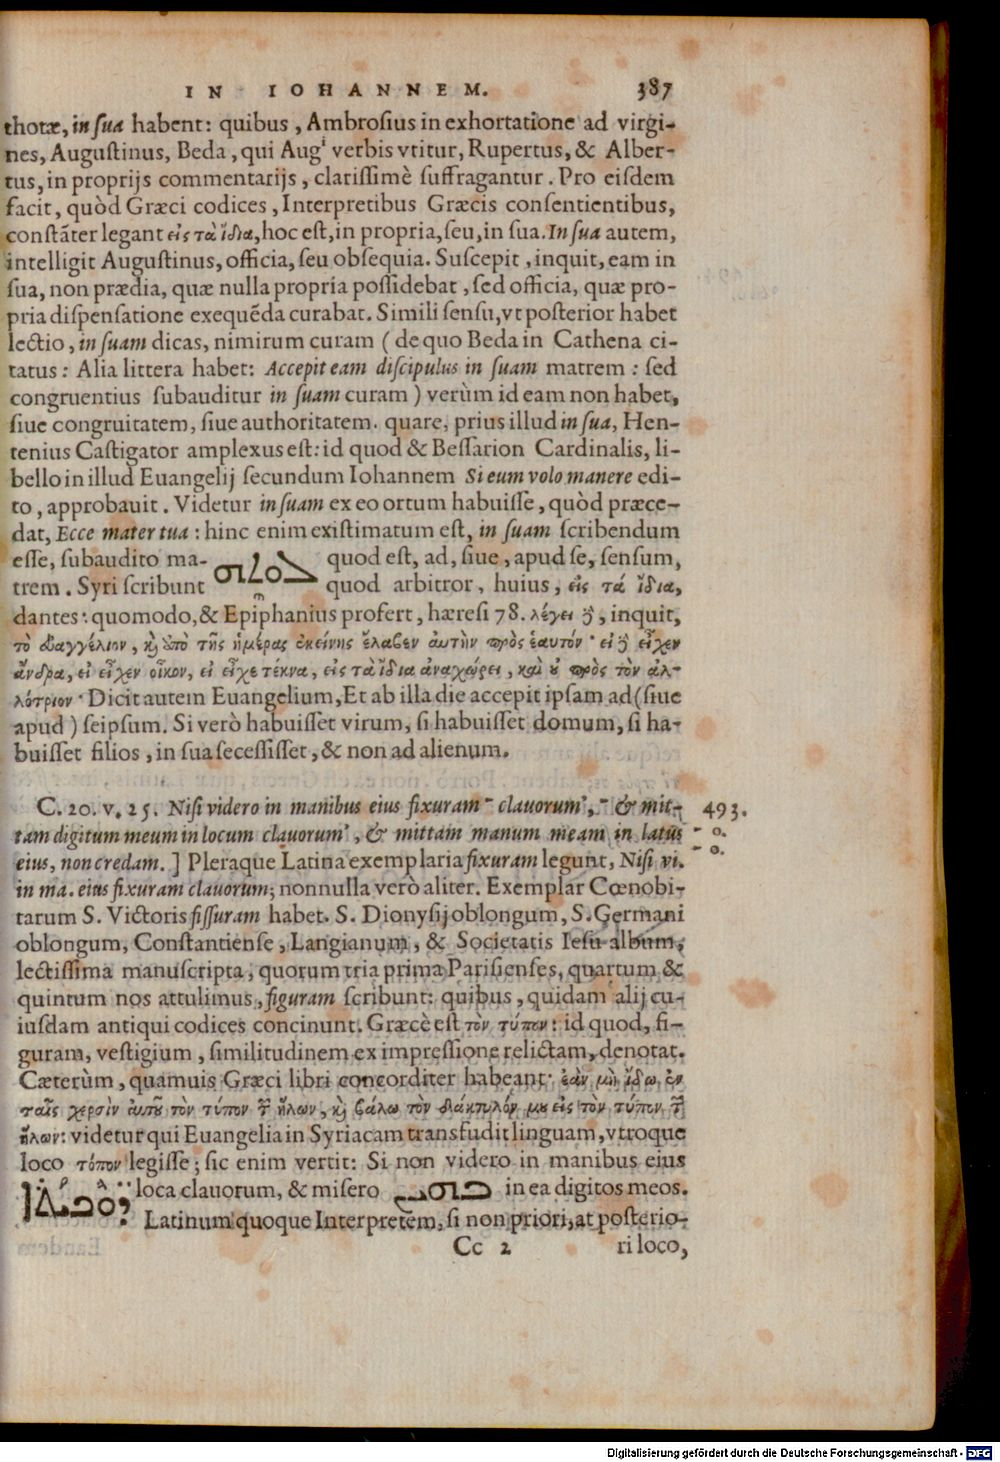 IN IOHANNEM. 387
thotæ, in ſua habent: quibus, Ambroſius in exhortatione ad virgi-
nes, Auguſtinus, Beda, qui Augⁱ verbis vtitur, Rupertus, & Alber-
tus, in proprijs commentarijs, clariſſimè ſuffragantur. Pro eiſdem
facit, quòd Græci codices, Interpretibus Græcis conſentientibus,
conſtāter legant εἰς τὰ ἴδια, hoc eſt, in propria, ſeu, in ſua. In ſua autem,
intelligit Auguſtinus, officia, ſeu obſequia. Suſcepit, inquit, eam in
ſua, non prædia, quæ nulla propria poſſidebat, ſed officia, quæ pro-
pria diſpenſatione exequēda curabat. Simili ſenſu, vt poſterior habet
lectio, in ſuam dicas, nimirum curam (de quo Beda in Cathena ci-
tatus: Alia littera habet: Accepit eam diſcipulus in ſuam matrem: ſed
congruentius ſubauditur in ſuam curam) verùm id eam non habet,
ſiue congruitatem, ſiue authoritatem. quare, prius illud in ſua, Hen-
tenius Caſtigator amplexus eſt: id quod & Beſſarion Cardinalis, li-
bello in illud Euangelij ſecundum Iohannem Si eum volo manere edi-
to, approbauit. Videtur in ſuam ex eo ortum habuiſſe, quòd præce-
dat, Ecce mater tua: hinc enim exiſtimatum eſt, in ſuam ſcribendum
eſſe, ſubaudito ma- quod eſt, ad, ſiue, apud ſe, ſenſum,
trem. Syri ſcribunt ܠܘܬܗ quod arbitror, huius, εἰς τά ἴδια,
dantes: quomodo, & Epiphanius profert, hæreſi 78. λέγει ȣ̓, inquit,
τὸ εὐαγγέλιον, κὶ ἀπὸ τῆς ἡμέρας ἐκείνης ἔλαβεν αὐτὴν πρὸς ἑαυτόν· εἰ δὲ εἶχεν
ἄνδρα, εἰ εἶχεν οἶκον, εἰ εἶχε τέκνα, εἰς τὰ ἴδια ἀναχώρει, καὶ ȣ πρὸς τὸν ἀλ-
λότριον· Dicit autem Euangelium, Et ab illa die accepit ipſam ad (ſiue
apud) ſeipſum. Si verò habuiſſet virum, ſi habuiſſet domum, ſi ha-
buiſſet filios, in ſua ſeceſſiſſet, & non ad alienum.
C. 20. v. 25. Niſi videro in manibus eius fixuram clauorum, & mit- 493.
tam digitum meum in locum clauorum, & mittam manum meam in latus o.
eius, non credam.] Pleraque Latina exemplaria fixuram legunt, Niſi vi. o.
in ma. eius fixuram clauorum; nonnulla verò aliter. Exemplar Cœnobi-
tarum S. Victoris fiſſuram habet. S. Dionyſij oblongum, S. Germani
oblongum, Conſtantienſe, Langianum, & Societatis Ieſu album,
lectiſſima manuſcripta, quorum tria prima Pariſienſes, quartum &
quintum nos attulimus, figuram ſcribunt: quibus, quidam alij cu-
iuſdam antiqui codices concinunt. Græcè eſt τὸν τύπον: id quod, fi-
guram, veſtigium, ſimilitudinem ex impreſſione relictam, denotat.
Cæterùm, quamuis Græci libri concorditer habeant· ἐὰν μὴ ἴδω ἐν
ταῖς χερσὶν αὐτοῦ τὸν τύπον τῶν ἥλων, κὶ βάλω τὸν δάκτυλόν μȣ εἰς τὸν τύπον τῶν
ἥλων: videtur qui Euangelia in Syriacam transfudit linguam, vtroque
loco τόπον legiſſe; ſic enim vertit: Si non videro in manibus eius
loca clauorum, & miſero in ea digitos meos.
Latinum quoque Interpretem, ſi non priori, at poſterio-
Cc 2 ri loco,